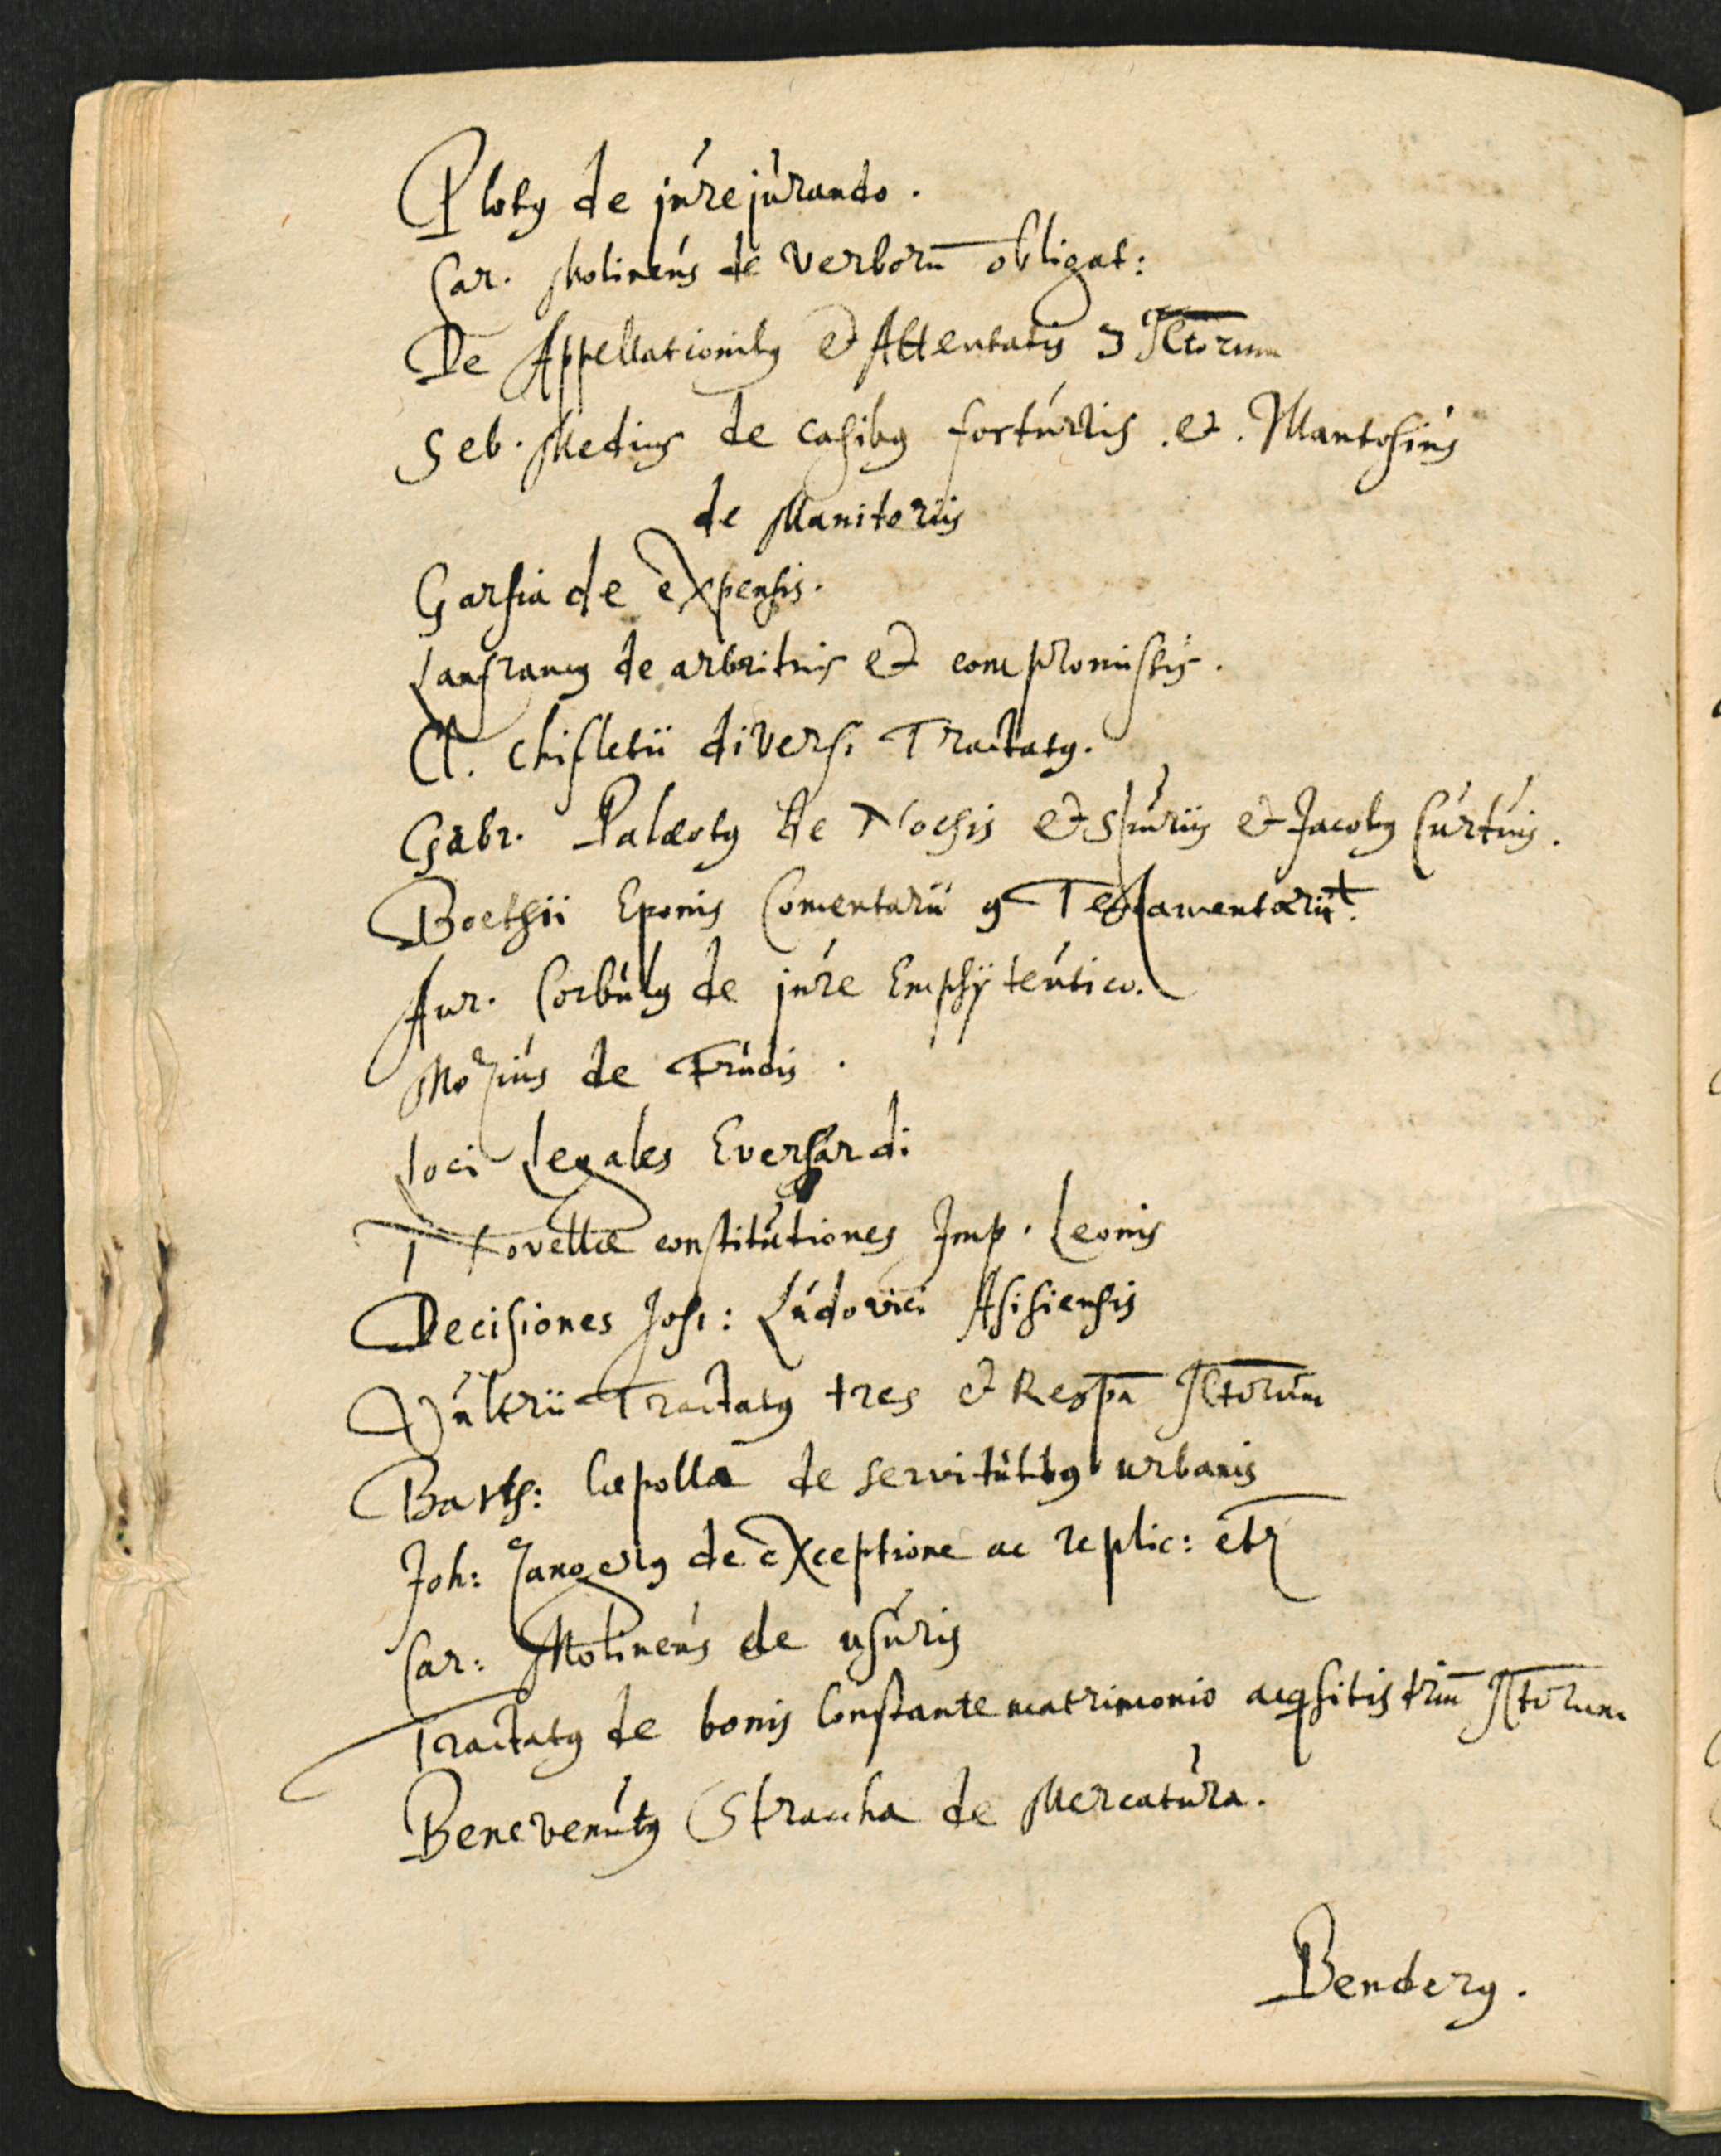 Plotꝰ de júrejúrando.
Car. Molineús de verborū obligat:
De Appellationibꝰ et Attentatis 3 JCtorum
Seb. Medius de casibꝰ fortúitis .et. Mantosiús
de Manitoriis
Garsia de expensis.
Lanfrancꝰ de arbritriis et compromissis.
Cl. Chifletii diversi Tractatꝰ.
Gabr. Palæotꝰ de Nothis et Spúriis et Jacobꝰ Cúrtius.
Boethii Eponis Comentarii ꝯ Testamentarii.
Aur. Corbúlꝰ de júre Emphÿteútico.
Moziús de Feúdis.
Loci Legales Everhardi
Novellæ constitútiones Imp. Leonis
Decisiones Joh: Lúdovici Asisiensis
Vúlteii Tractatꝰ tres et Respā JCtorúm
Barth: Cæpolla de servitútibꝰ urbanis
Joh: Zangerꝰ de exceptione ac replic: etc
Car: Molineús de usúris
Tractatꝰ de bonis Constante matrimonio acqsitis triū JCtorum
Benevenútꝰ Straccha de Mercatúra.
Benderꝰ.